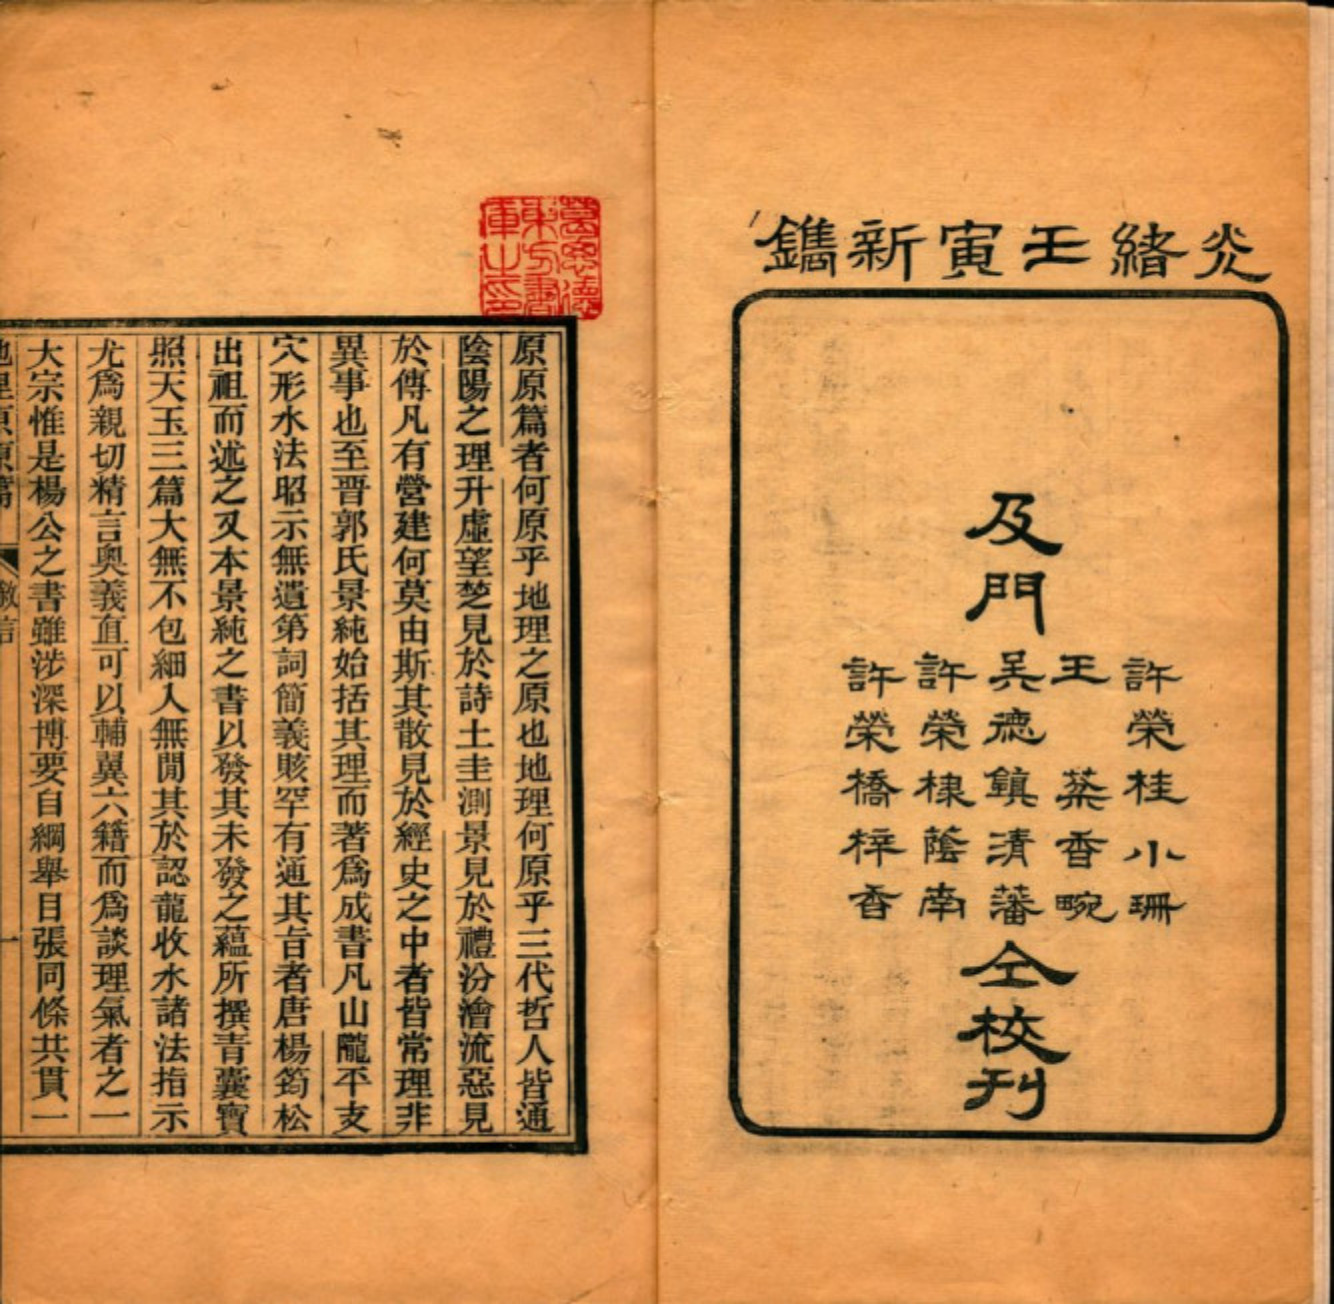 炗緒壬寅新鐫
及門
許榮桂小珊
王蔾香畹
吴德鎮清藩
許榮棣蔭南
許榮橋梓香
仝校刊
葛思德東方書庫之印
原原篇者何原乎地理之原也地理何原乎三代哲人皆通
陰陽之理升虛望楚見於詩土圭測景見於禮汾澮流惡見
於傳凡有營建何莫由斯其散見於經史之中者皆常理非
異事也至晉郭氏景純始括其理而著爲成書凡山隴平支
穴形水法昭示無遺第詞簡義賅罕有通其旨者唐楊筠松
出祖而述之又本景純之書以發其未發之蘊所撰青囊寶
照天玉三篇大無不包細入無閒其於認龍收水諸法指示
尤爲親切精言奧義直可以輔翼六籍而爲談理氣者之一
大宗惟是楊公之書雖涉深博要自綱舉目張同條共貫一
地理原原篇 敘言 一